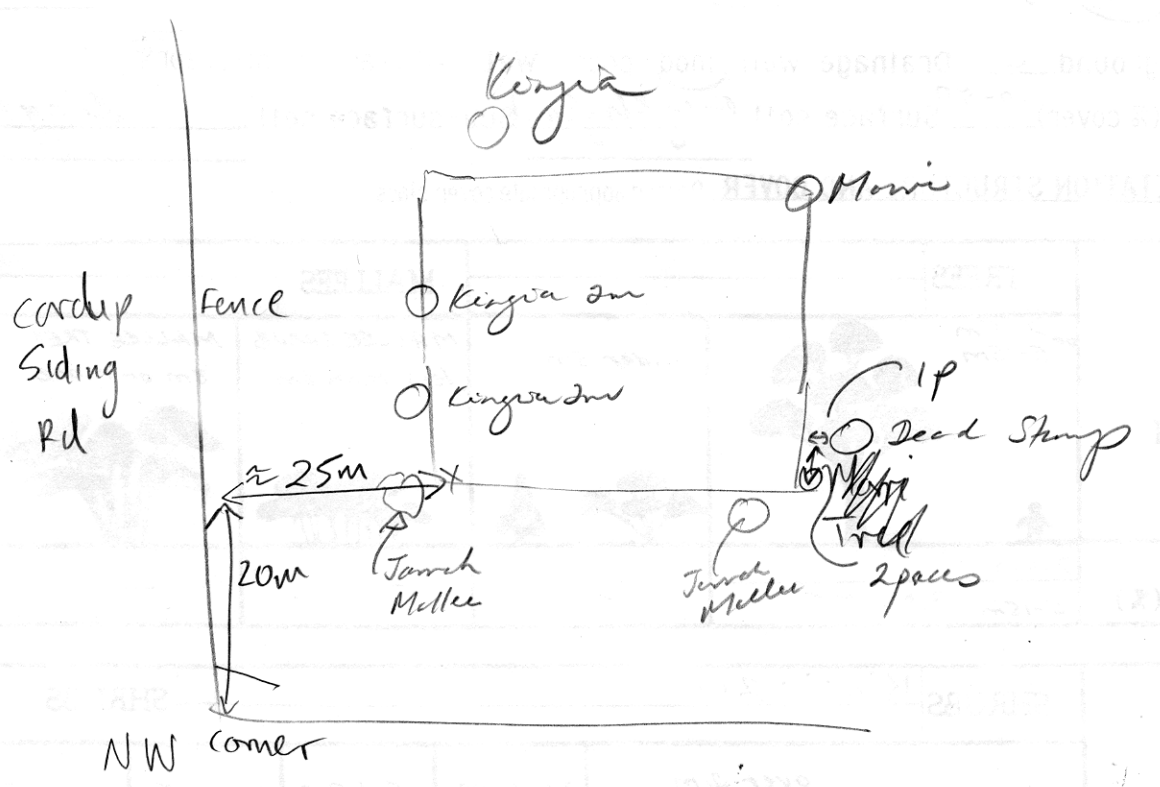 Kingia
Marri
Cardup
Siding
Rd
Fence
Kingia 2m
Kingia 2m
1P
Dead Stump
≈ 25m
20m
Jarrah
Mallee
Jarrah
Mallee
2 paces
NW Corner